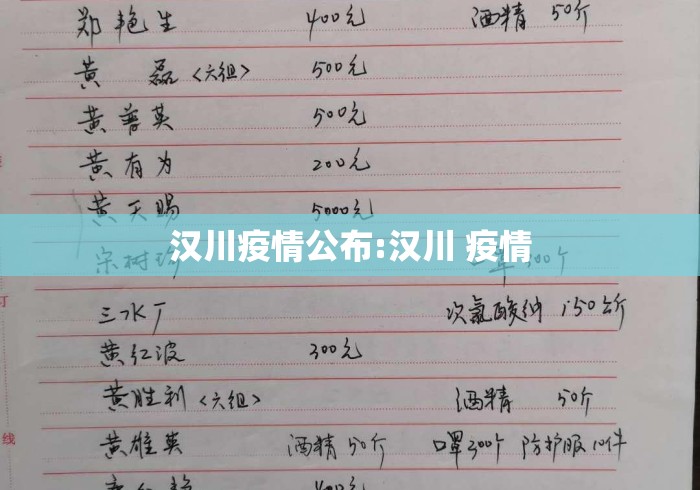 郑艳生 400元 酒精 50斤
黄磊〈六组〉 500元
黄普英 500元
黄有为 200元
黄天赐 5000元
汉川疫情公布:汉川 疫情
宋树
三水厂 次氯酸钠 150公斤
黄红波 300元
黄胜利〈六组〉 酒精 50斤
黄雄英 酒精50斤 口罩300个 防护服10件
400元
订
线